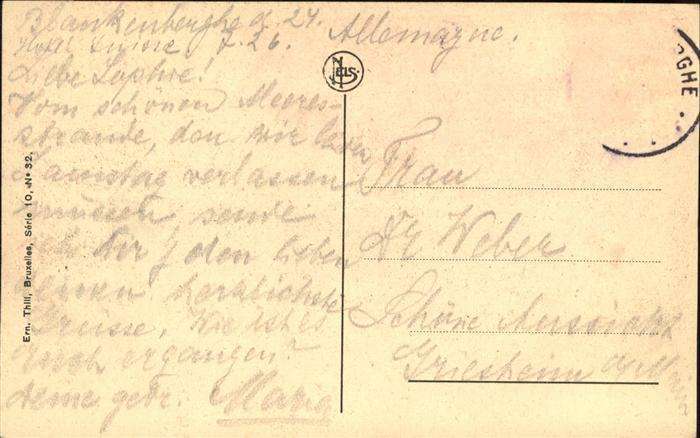 Blankenberghe d. 24.
Hotel Suisse 7. 26.
Allemagne.
Liebe Sophie!
Vom schönen Meeres-
strande, den wir
Samstag verlassen
müssen, sende
ich Dir & den lieben
herzlichste
Grüsse. Wie ist es
Euch ergangen?
Deine getr. Maria
NELS
GHE
Frau
Dr Weber
Schöne Aussicht
Griesheim a/Main
Ern. Thill, Bruxelles, Série 10, No 32.